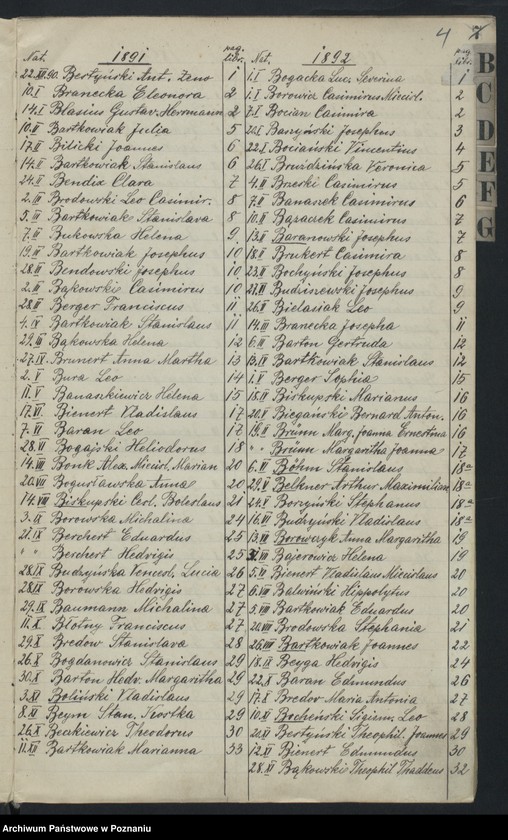 4
Nat. 1891 pag. libr.
22.XII.90. Bertyński Ant. Zeno 1
10.I Branecka Eleonora 2
14.I Blasius Gustav Herrmann 2
10.II Bartkowiak Julia 5
17.II Bilicki Joannes 6
14.II Bartkowiak Stanislaus 6
24.II Bendix Clara 7
2.III Brodowski Leo Casimir. 8
5.III Bartkowiak Stanislava 8
7.III Bukowska Helena 9
19.III Bartkowiak Josephus 10
28.II Bendowski Josephus 10
2.III Bąkowski Casimirus 10
28.III Berger Franciscus 11
4.IV Bartkowiak Stanislaus 11
29.III Bąkowska Helena 12
27.IV. Brunert Anna Martha 13
2.V Bura Leo 14
11.V Banaszkiewicz Helena 15
17.VI. Bienert Vladislaus 17
7.VI Baran Leo 17
28.VI Bogajski Heliodorus 18
14.VII Bonk Alex. Miecisl. Marian 20
20.VII Bogusławska Anna 20
14.VIII Biskupski Cesl. Boleslaus 21
3.IX Borowska Michalina 24
21.IX Berchert Eduardus 25
" " Berchert Hedvigis 25
28.IX Budzyńska Vencesl. Lucia 26
28.IX Borowska Hedvigis 27
29.IX Baumann Michalina 27
11.X Błotny Franciscus 27
29.X Bredow Stanislava 28
26.X Bogdanowicz Stanislaus 29
30.X Barton Hedv. Margaritha 29
3.XI Boliński Vladislaus 29
8.XI Beym Stan. Kostka 29
26.X Beckiewicz Theodorus 30
11.XII Bartkowiak Marianna 33
Nat. 1892 pag. libr.
1.I Bogacka Luc. Severina 1
1.I Borowicz Casimirus Miecisl. 2
7.I Bocian Casimira 2
20.I Barzyński Josephus 3
22.I Bociański Vincentius 4
26.I Bruździńska Veronica 5
4.II Brzeski Casimirus 5
7.II Banaszek Casimirus 6
10.II Bązaczek Casimirus 7
13.II Baranowski Josephus 7
18.II Brukert Casimira 8
23.II Bochyński Josephus 8
27.II Budziszewski Josephus 9
26.II Bielasiak Leo 9
14.III Branecka Josepha 11
6.III Barton Gertruda 12
13.IV Bartkowiak Stanislaus 12
1.V Berger Sophia 15
18.IV Biskupski Marianus 16
20.V Biegański Bernard Anton. 16
18.V Brünn Marg. Joanna Ernestina 16
" " Brünn Margaritha Joanna 17
6.VI Böhm Stanislaus 18a
29.V Belkner Arthur Maximilian 18a
24.V Borzyński Stephanus 18a
16.VI Budzyński Vladislaus 18a
13.VI Borowczyk Anna Margaritha 19
Bajerowicz Helena 19
5.VI Bienert Vladislaus Miecislaus 20
6.VIII Balwiński Hippolytus 20
5.VIII Bartkowiak Eduardus 20
20.VIII Brodowska Stephania 21
26.VIII Bartkowiak Joannes 22
18.IX Beyga Hedvigis 24
22.X Baran Edmundus 26
17.X Bredov Maria Antonia 27
10.XI Bocheński Sigism. Leo 28
20.XI Bertyński Theophil. Joannes 29
12.XI Bienert Edmundus 30
28.XI Bąkowski Theophil Thaddeus 32
B
C
D
E
F
G
Archiwum Państwowe w Poznaniu